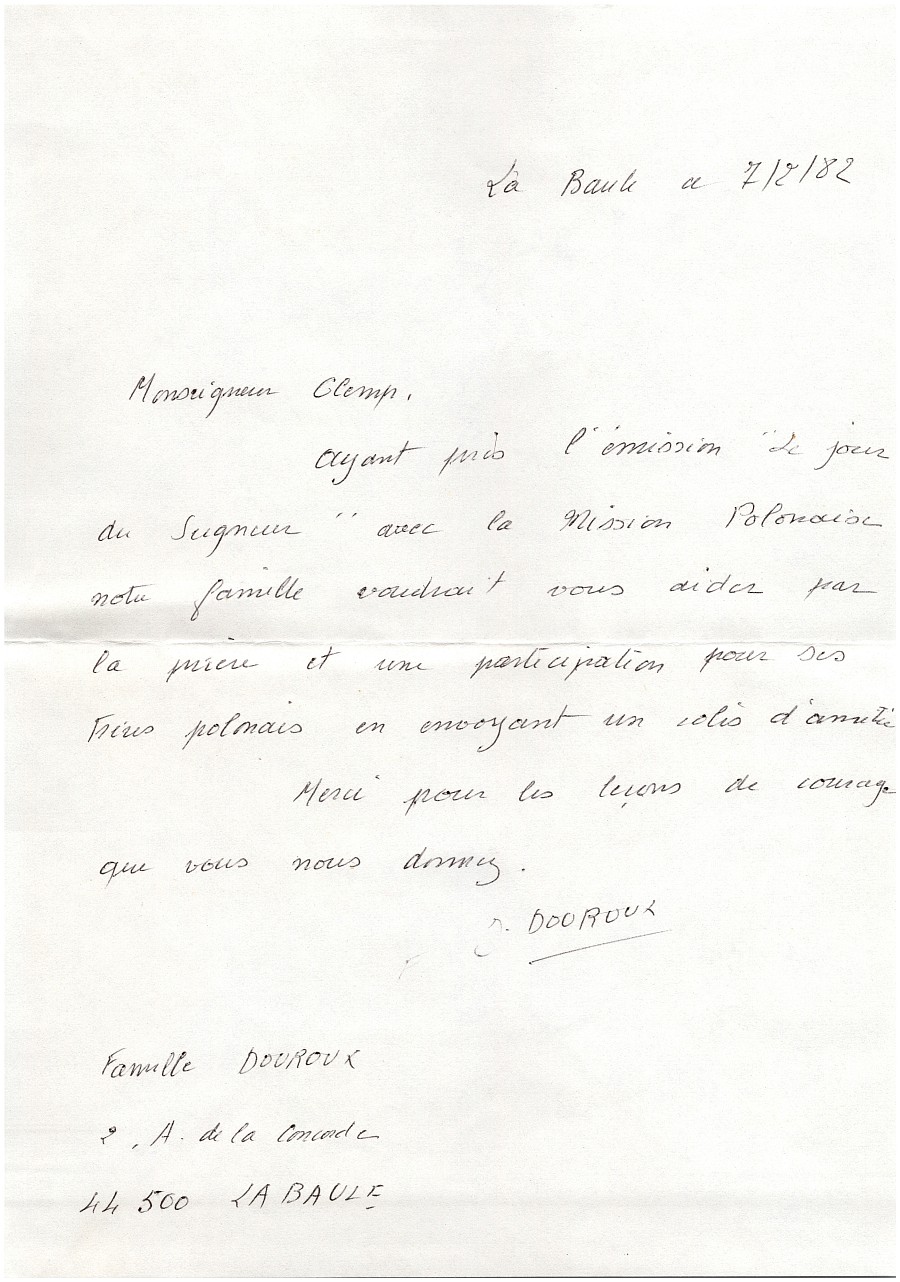 La Baule ce 7/2/82
Monseigneur Glemp.
Ayant pris l'émission "Le jour
du Seigneur" avec la Mission Polonaise
notre famille voudrait vous aider par
la prière et une participation pour ses
Frères polonais en envoyant un colis d'amitié
Merci pour les leçons de courage
que vous nous donnez.
DOUROUX
Famille DOUROUX
2, A. de la Concorde
44 500 LA BAULE